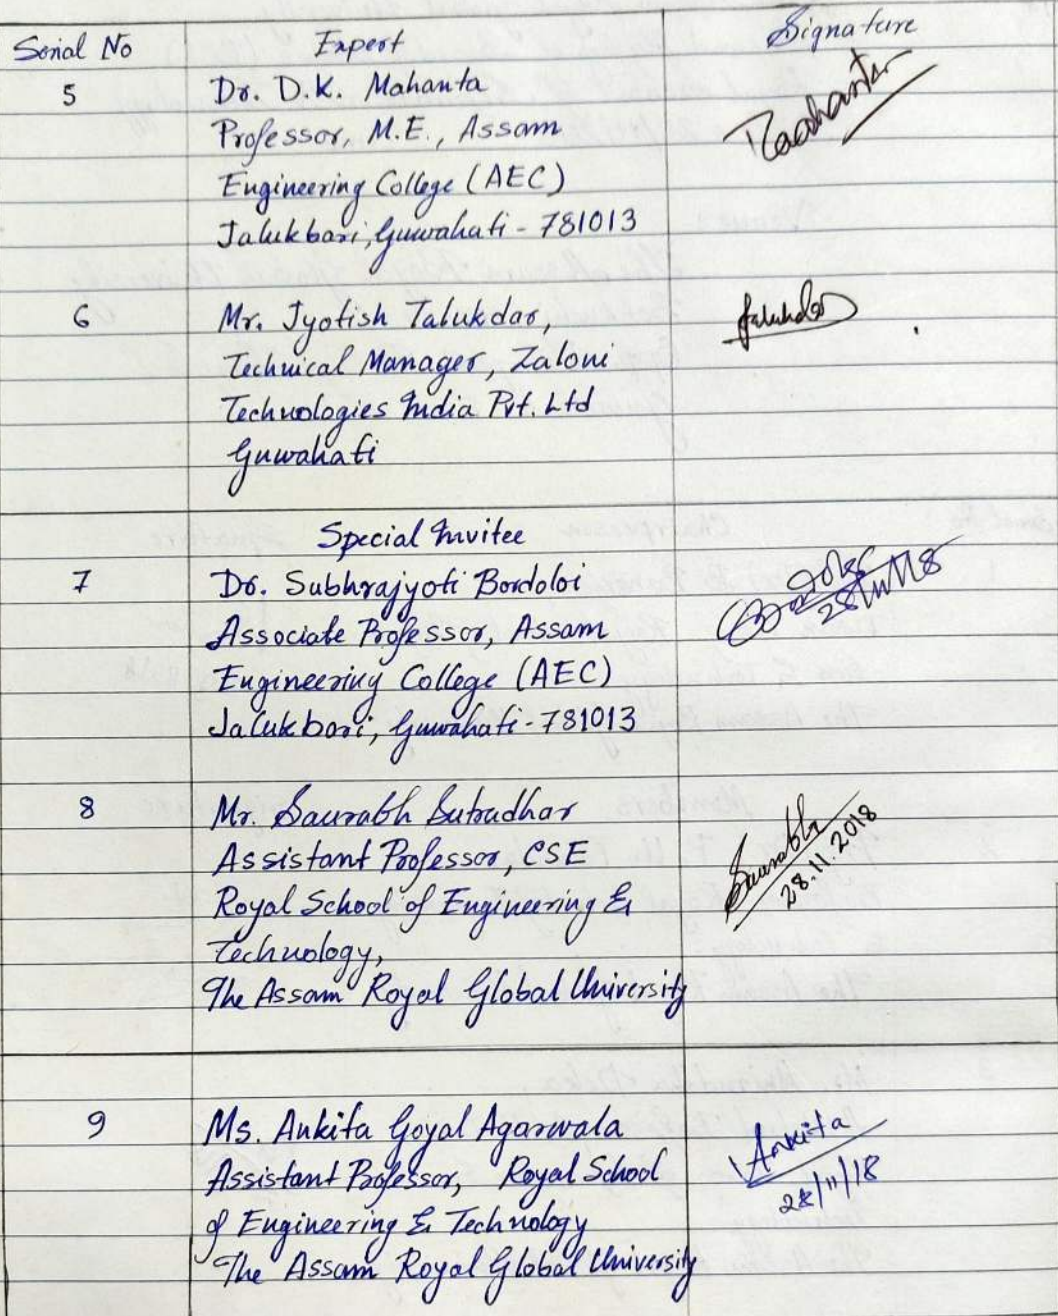 Serial No Expert Signature
5 Dr. D.K. Mahanta
Professor, M.E., Assam
Engineering College (AEC)
Jalukbari, Guwahati - 781013
6 Mr. Jyotish Talukdar,
Technical Manager, Zaloni
Technologies India Pvt. Ltd
Guwahati
Special Invitee
7 Dr. Subhrajyoti Bordoloi
Associate Professor, Assam
Engineering College (AEC)
Jalukbari, Guwahati - 781013
28/11/18
8 Mr. Saurabh Sutradhar
Assistant Professor, CSE
Royal School of Engineering &
Technology,
The Assam Royal Global University
Saurabh
28.11.2018
9 Ms. Ankita Goyal Agarwala
Assistant Professor, Royal School
of Engineering & Technology
The Assam Royal Global University
Ankita
28/11/18